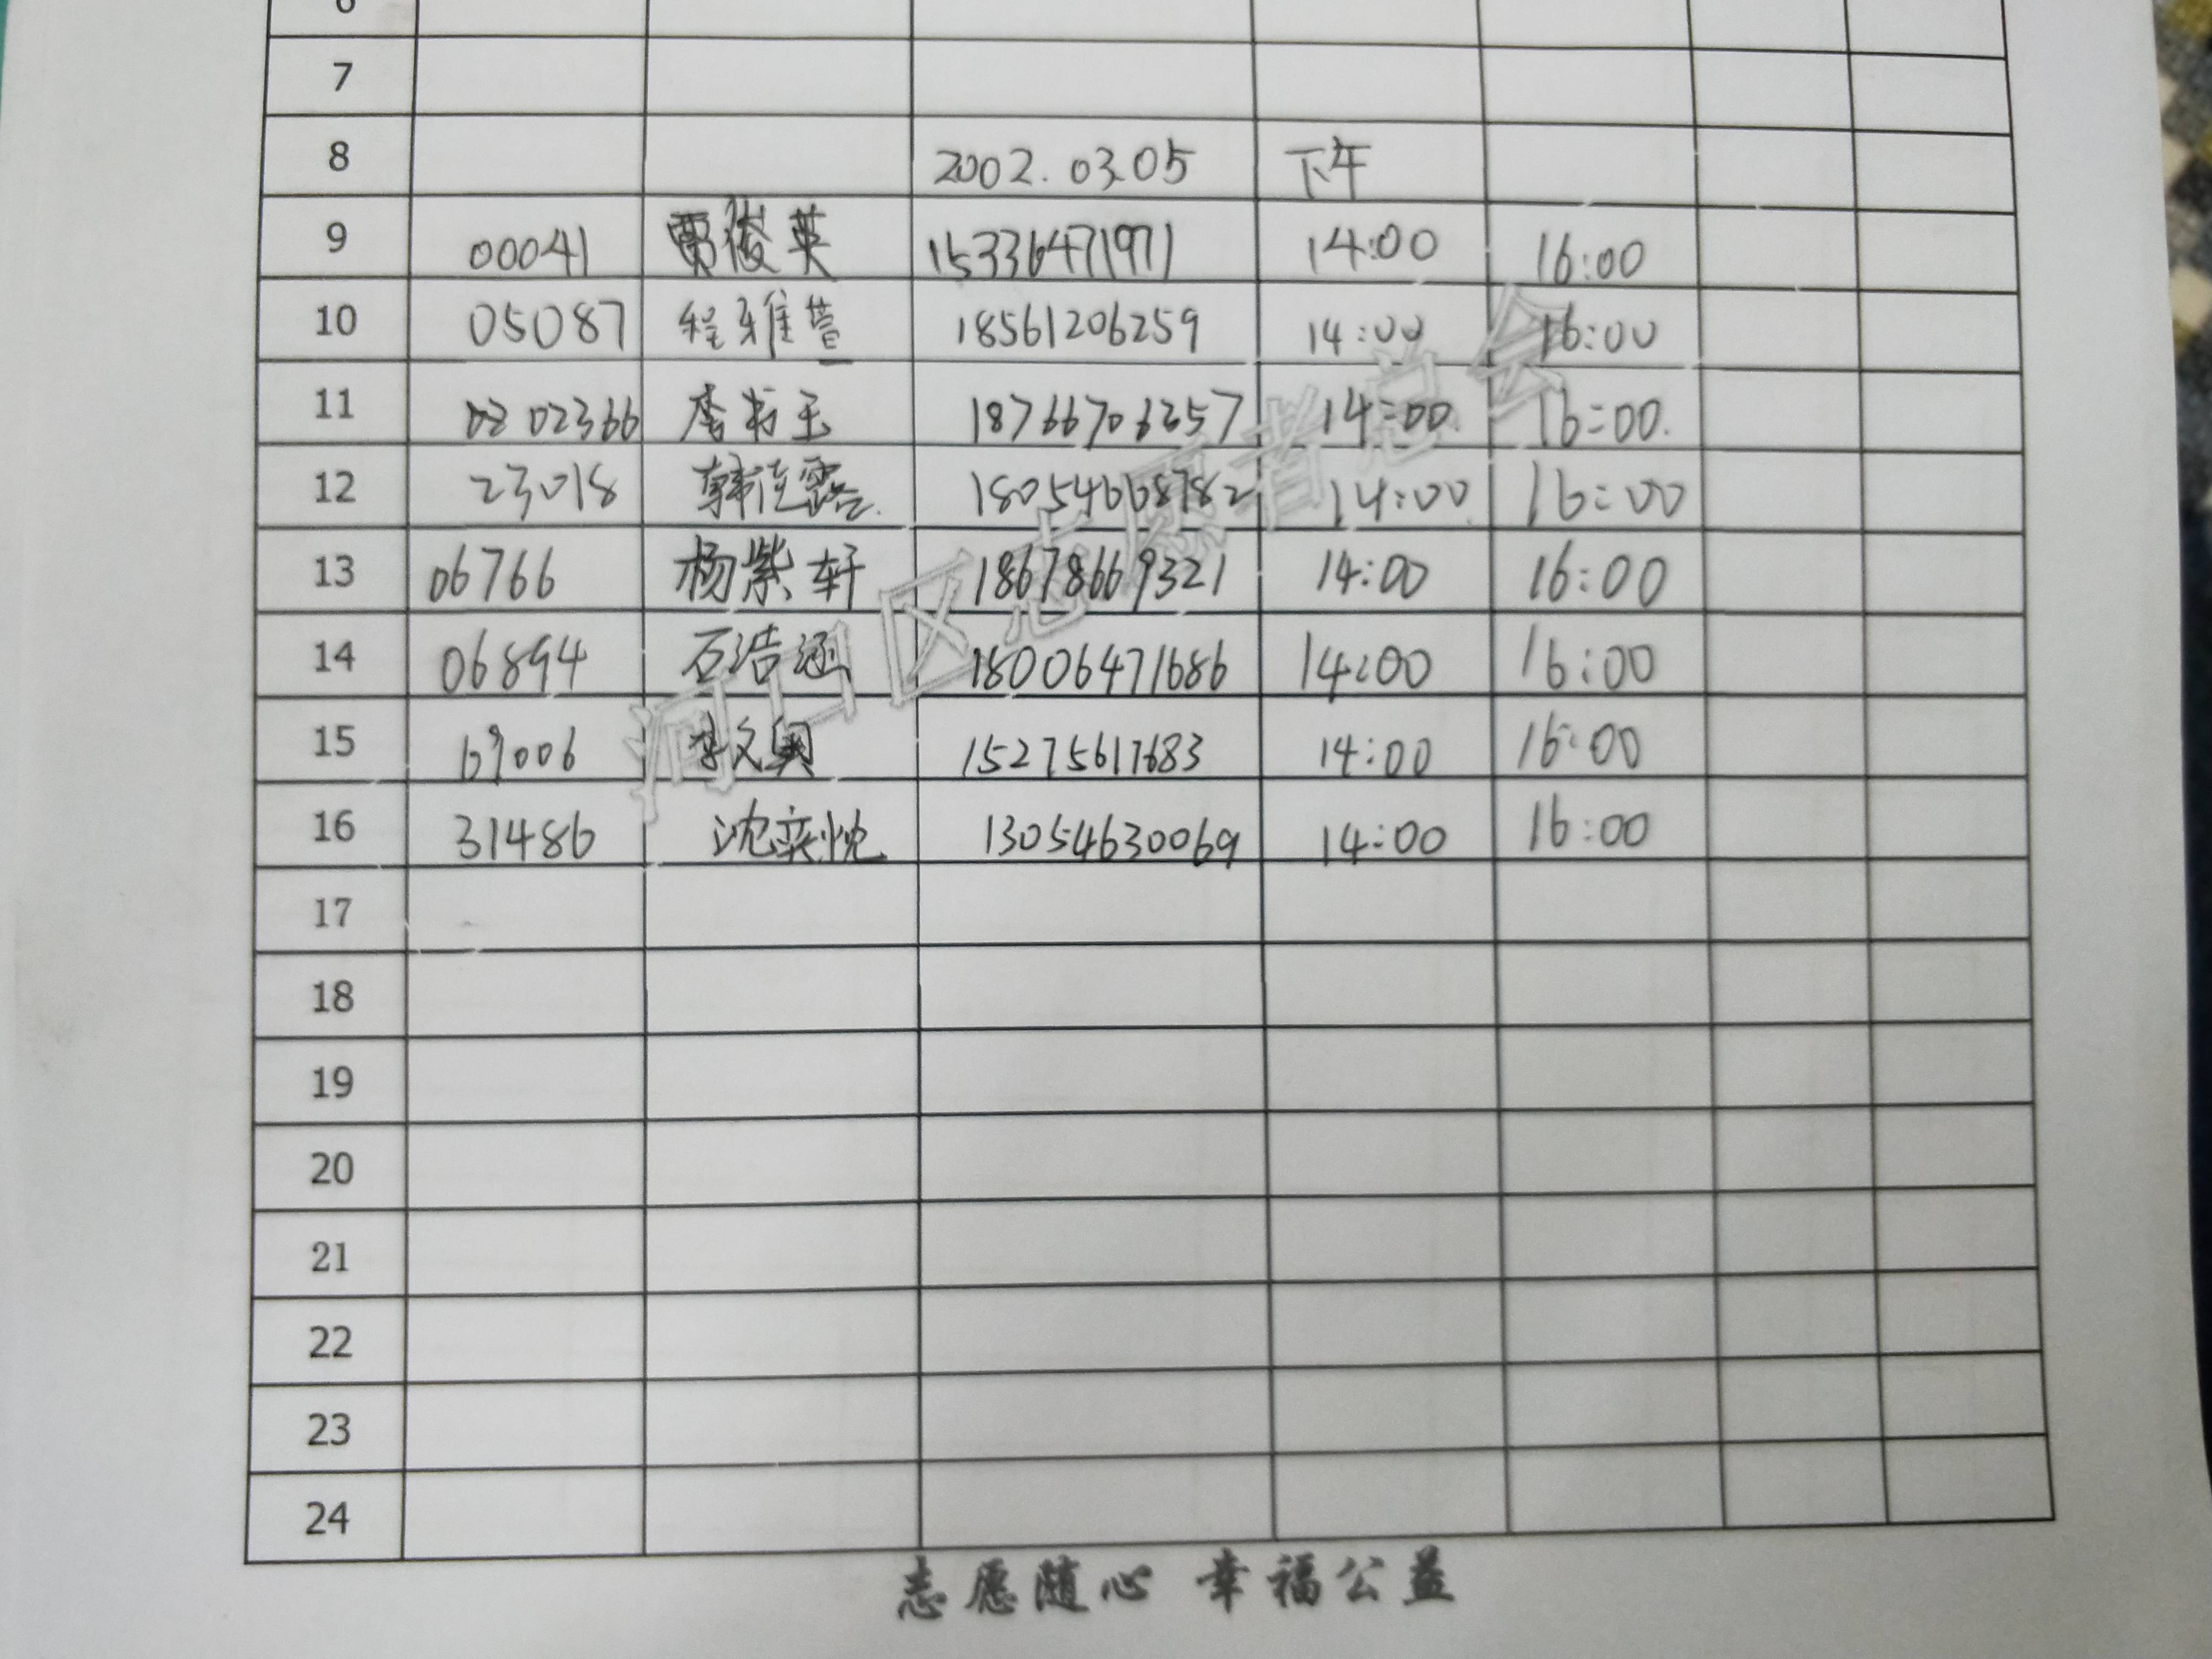 6
7
8 2002.03.05 下午
9 00041 贾俊英 15336471971 14:00 16:00
10 05087 程雅萱 18561206259 14:00 16:00
11 02366 李书玉 18766706257 14:00 16:00.
12 23018 韩滢露 18054668782 14:00 16:00
13 06766 杨紫轩 18678669321 14:00 16:00
14 06894 石浩涵 18006471686 14:00 16:00
15 69006 李文奥 15275617683 14:00 16:00
16 31486 沈奕悦 13054630069 14:00 16:00
17
18
19
20
21
22
23
24
河口区志愿者总会
志愿随心 幸福公益